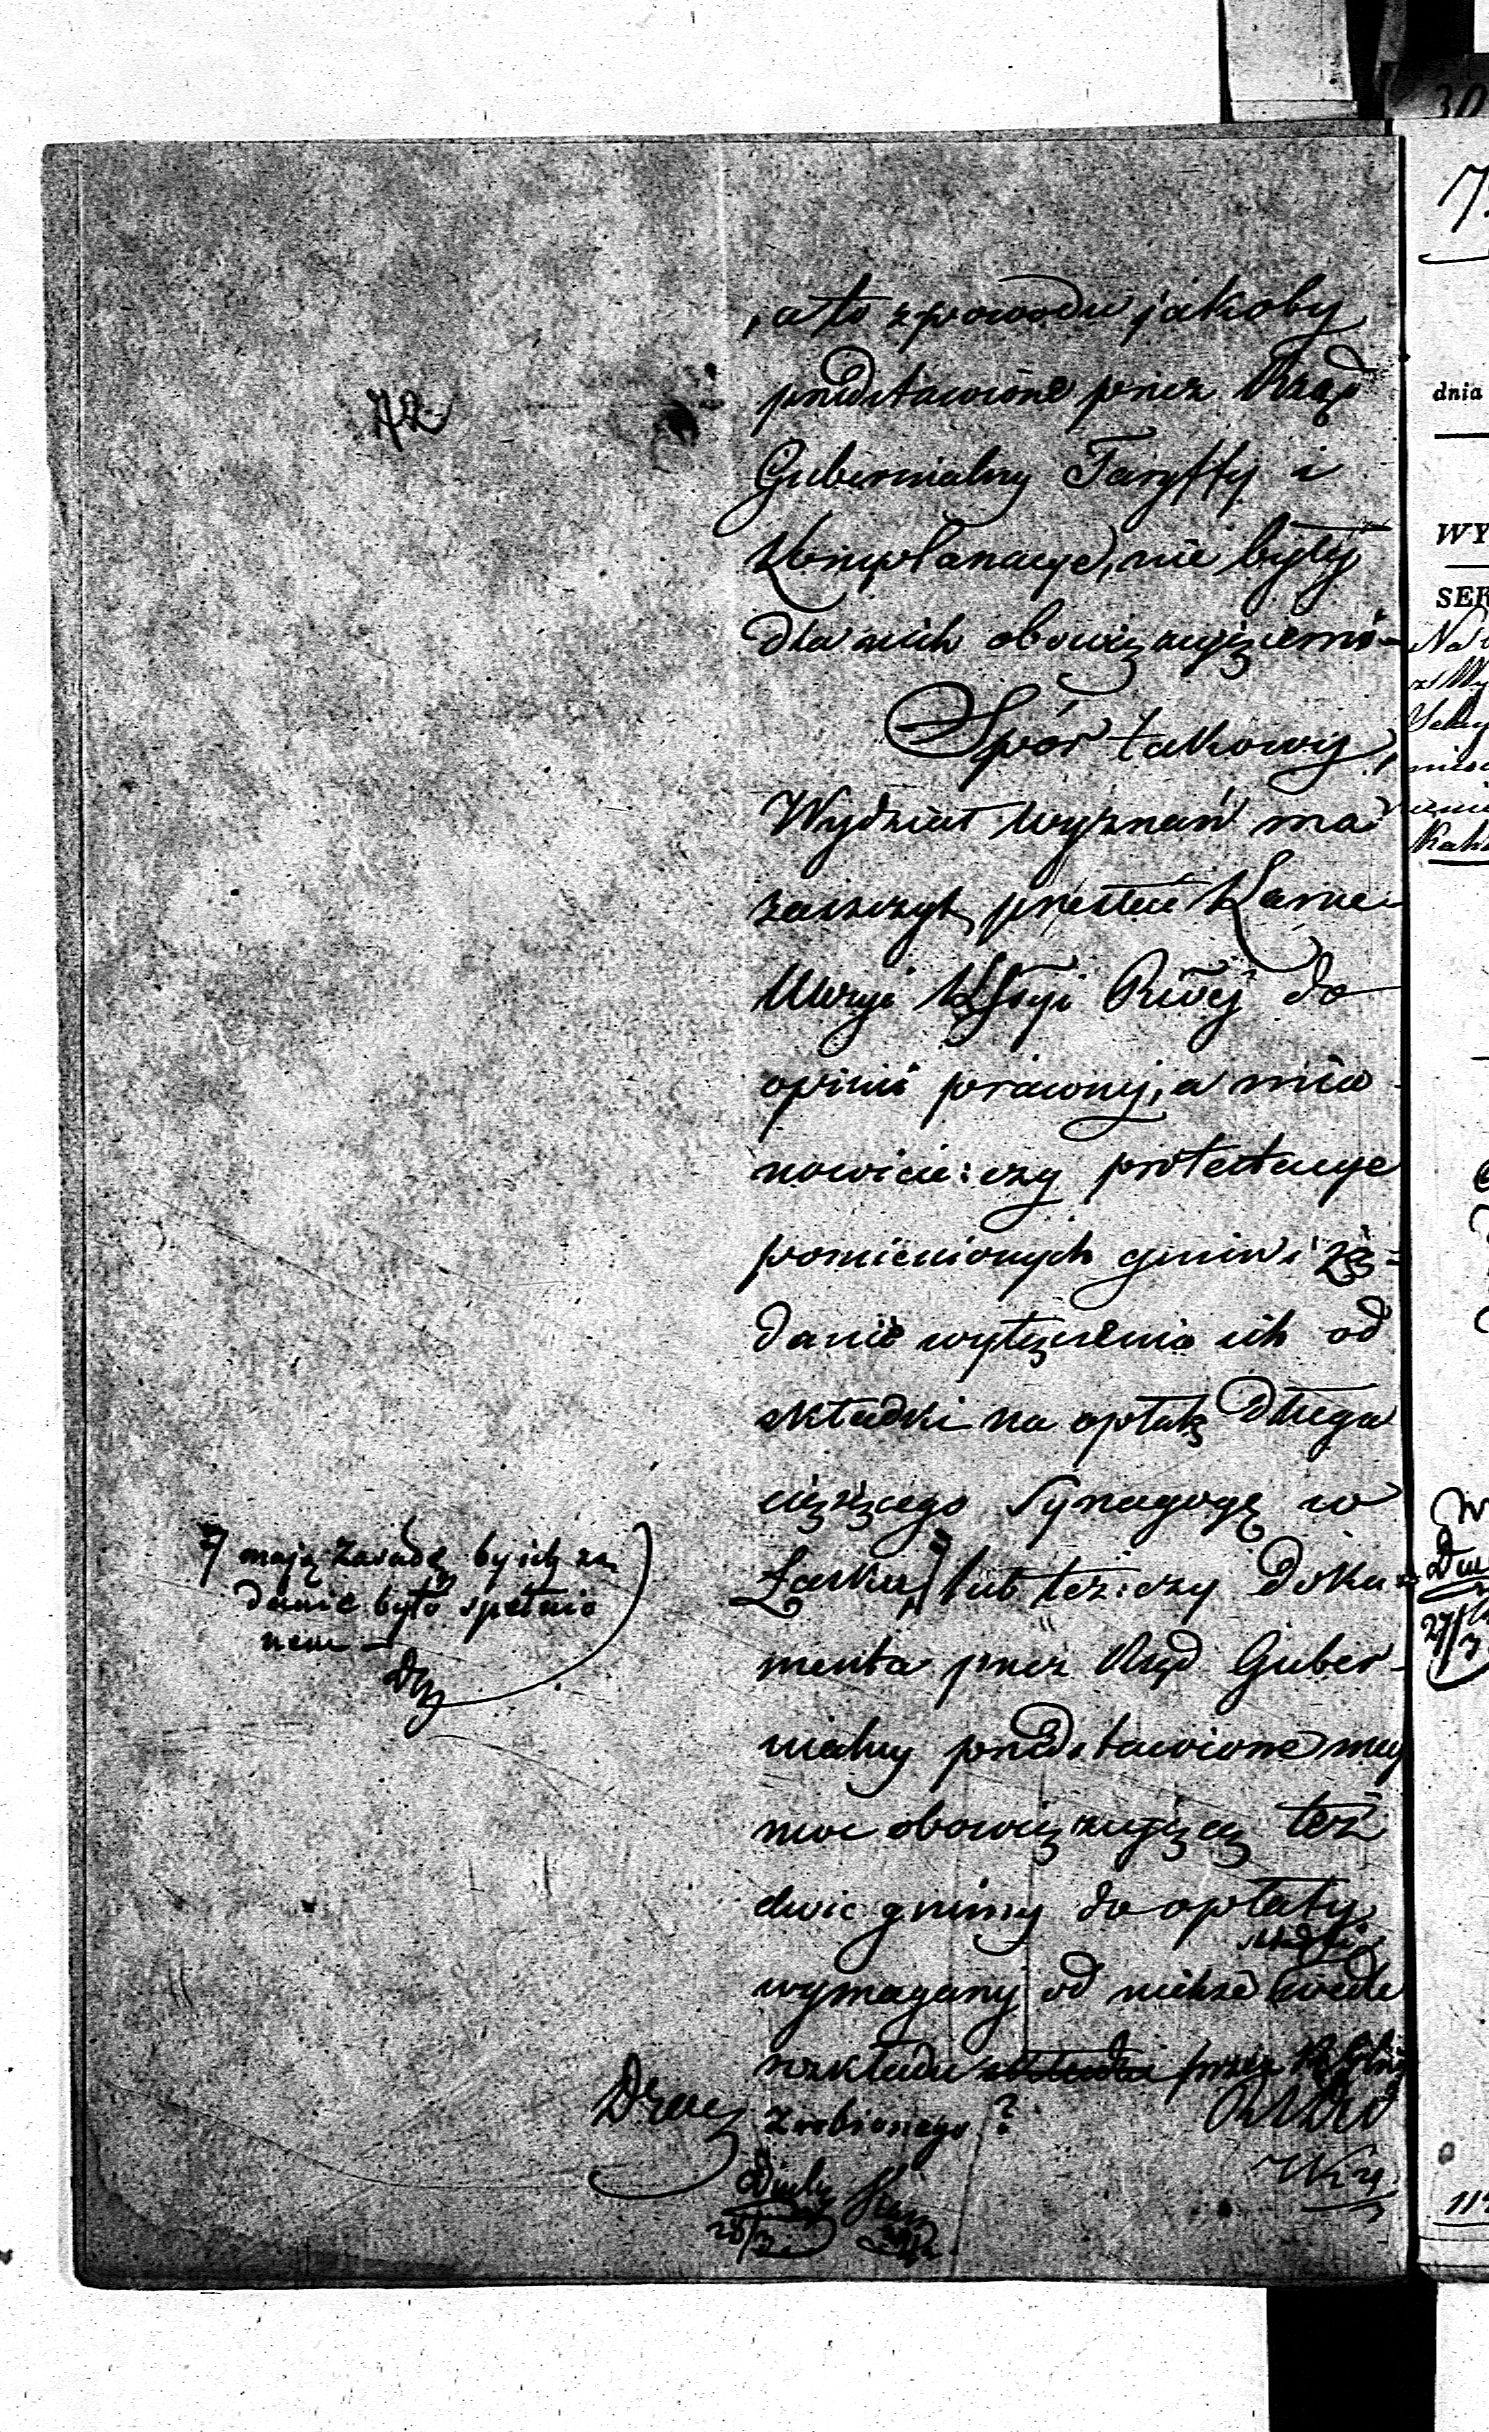 72
, a to z powodu jakoby
przedstawione przez Rząd
Gubernialny Taryffy i
Komplanacye, nie były
dla nich obowiązującemi -
Spór takowy,
Wydział wyznań ma
zaszczyt przesłać Kance-
llaryi KRsyi Rwéj do
opinii prawnej, a mia
nowicie: czy protestacye
pomienionych gmin i żą-
danie wyłączenia ich od
składki na opłatę długu
ciążącego Synagogę w
Łasku, lub też: czy doku-
menta przez Rząd Guber-
nialny przedstawione mają
moc obowiązującą też
dwie gminy do opłaty
składki
wymaganej od nich wedle
rozkładu składki przez
zrobionego?
mają zasadę by ich żą
danie było spełnio
nem -
28/7
dnia
WY
SER
27/7